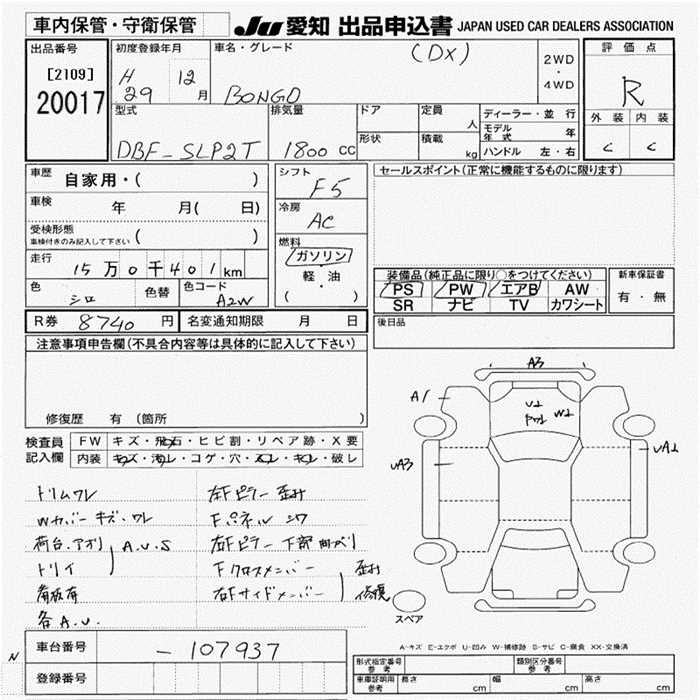 車内保管・守衛保管
JU 愛知 出品申込書 JAPAN USED CAR DEALERS ASSOCIATION
出品番号
[2109]
20017
初度登録年月
H 29 12 月
車名・グレード
(DX)
BONGO
2WD
・
4WD
評価点
R
外装 内装
C C
型式
DBF-SLP2T
排気量
1800 CC
ドア
形状
定員 人
積載 kg
ディーラー・並行
モデル年式 年
ハンドル 左・右
車歴 自家用・( )
車検 年 月(日)
受検形態
車検付きのみ記入して下さい ( )
走行 15万0千401km
色 シロ 色替
色コード A2W
シフト
F5
冷房
AC
燃料
ガソリン
軽・油
( )
セールスポイント(正常に機能するものに限ります)
装備品(純正品に限り○をつけてください)
PS PW エアB AW
SR ナビ TV カワシート
新車保証書
有・無
R券 8740 円 名変通知期限 月 日
後日品
注意事項申告欄(不具合内容等は具体的に記入して下さい)
修復歴 有 (箇所 )
検査員
記入欄
FW キズ・飛石・ヒビ割・リペア跡・X要
内装 キズ・汚れ・コゲ・穴・スレ・キレ・破レ
トリムワレ
Wカバーキズ・ワレ
荷台.アオリ A.U.S
トリイ
看板有
各A.U.
右Fピラー歪み
Fパネルシワ
右Fピラー下部曲ベリ
Fクロスメンバー 歪み
右Fサイドメンバー 修復
A3
A1
U2
W2
UA3
UA2
スペア
A-キズ E-エクボ U-凹み W-補修跡 S-サビ C-腐食 XX-交換済
車台番号 -107937
登録番号
N
形式指定番号
参考
類別区分番号
参考
車庫証明用
参考
長さ cm 幅 cm 高さ cm